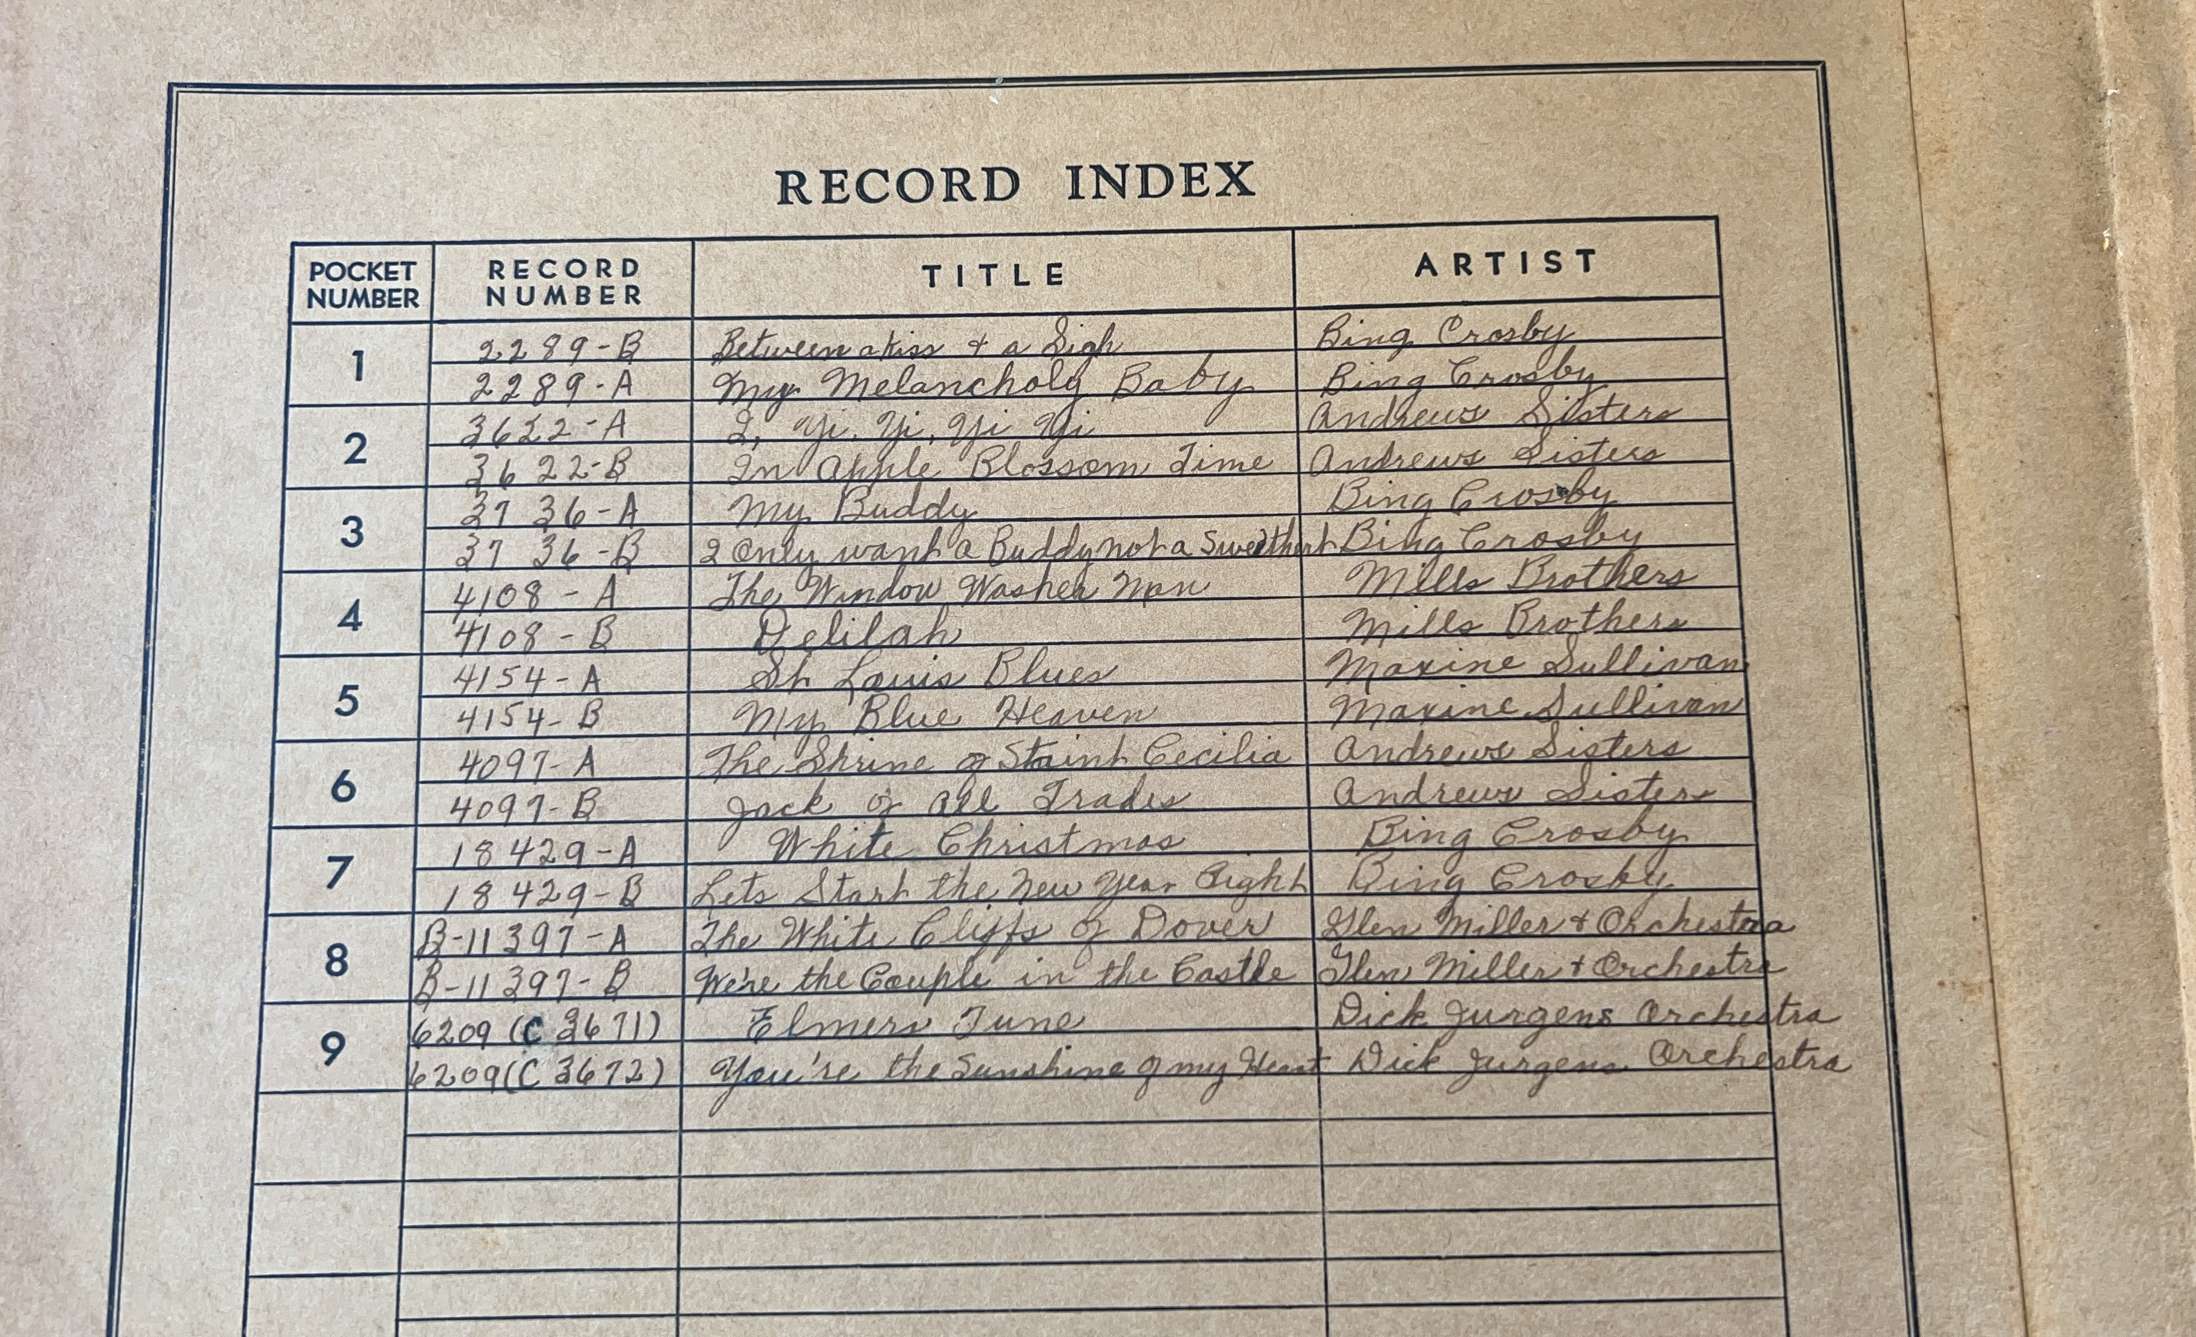 RECORD INDEX
POCKET NUMBER RECORD NUMBER TITLE ARTIST
1 2289-B Between a kiss + a Sigh Bing Crosby
2289-A My Melancholy Baby Bing Crosby
2 3622-A I, Yi, Yi, Yi Yi Andrews Sisters
3622-B In Apple Blossom Time Andrews Sisters
3 3736-A My Buddy Bing Crosby
3736-B I Only want a Buddy not a Sweetheart Bing Crosby
4 4108-A The Window Washer Man Mills Brothers
4108-B Delilah Mills Brothers
5 4154-A St Louis Blues Maxine Sullivan
4154-B My Blue Heaven Maxine Sullivan
6 4097-A The Shrine of Staint Cecilia Andrews Sisters
4097-B Jack of all Trades Andrews Sisters
7 18429-A White Christmas Bing Crosby
18429-B Lets Start the New Year Right Bing Crosby
8 B-11397-A The White Cliffs of Dover Glen Miller + Orchestra
B-11397-B We're the Couple in the Castle Glen Miller + Orchestra
9 6209 (C 3671) Elmers Tune Dick Jurgens Orchestra
6209 (C 3672) You're the Sunshine of my Heart Dick Jurgens Orchestra